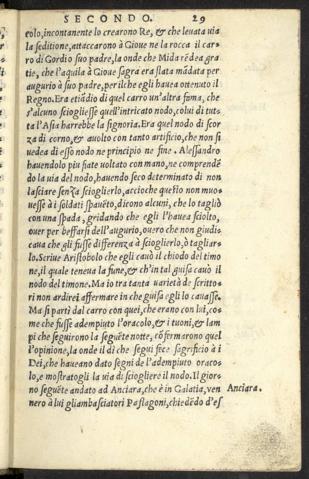 SECONDO. 29
colo, incontanente lo crearono Re, & che leuata uia
la seditione, attaccarono à Gioue ne la rocca il car-
ro di Gordio suo padre, la onde che Mida rēdea gra
tie, che l'aquila à Gioue sagra era stata mādata per
augurio à suo padre, per ilche egli hauea ottenuto il
Regno. Era etiādio di quel carro un'altra fama, che
s'alcuno sciogliesse quell'intricato nodo, colui di tut-
ta l'Asia harrebbe la signoria. Era quel nodo di scor
za di corno, & auolto con tanto artificio, che non si
uedea di esso nodo ne principio ne fine. Alessandro
hauendolo piu fiate uoltato con mano, ne comprendē
do la uia del nodo, hauendo seco determinato di non
lasciare senza scioglierlo, accioche questo non mo-
uesse à i soldati spauēto, dicono alcuni, che lo tagliò
con una spada, gridando che egli l'hauea sciolto,
ouer per beffarsi dell'augurio, ouero che non giudi-
caua che gli fusse differenza à scioglierlo, ò tagliar-
lo. Scriue Aristobolo che egli cauò il chiodo del timo
ne, il quale teneua la fune, & ch'in tal guisa cauò il
nodo del timone. Ma io tra tanta uarietà de scritto-
ri non ardirei affermare in che guisa egli lo cauasse.
Ma si partì dal carro con quei, che erano con lui, co-
me che fusse adempiuto l'oracolo, & i tuoni, & lam
pi che seguirono la seguēte notte, cōfermarono quel
l'opinione, la onde il dì che seguì fece sagrificio à i
Dei, che haueano dato segni de l'adempiuto oraco-
lo, e mostratogli la uia di sciogliere il nodo. Il gior-
no seguēte andato ad Anciara, che è in Galatia, ven
Anciara.
nero à lui gliambasciatori Paflagoni, chiedēdo d'es